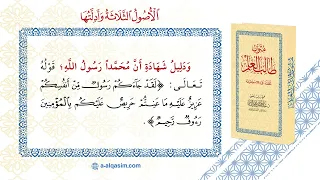 الْأُصُولُ الثَّلَاثَةُ وَأَدِلَّتُهَا
وَدَلِيلُ شَهَادَةِ أَنَّ مُحَمَّداً رَسُولُ اللَّهِ؛ قَوْلُهُ
تَعَالَى: ﴿لَقَدْ جَاءَكُمْ رَسُولٌ مِنْ أَنْفُسِكُمْ
عَزِيزٌ عَلَيْهِ مَا عَنِتُّمْ حَرِيصٌ عَلَيْكُمْ بِالْمُؤْمِنِينَ
رَءُوفٌ رَحِيمٌ﴾.
متون
طالب العلم
a-alqasim.com